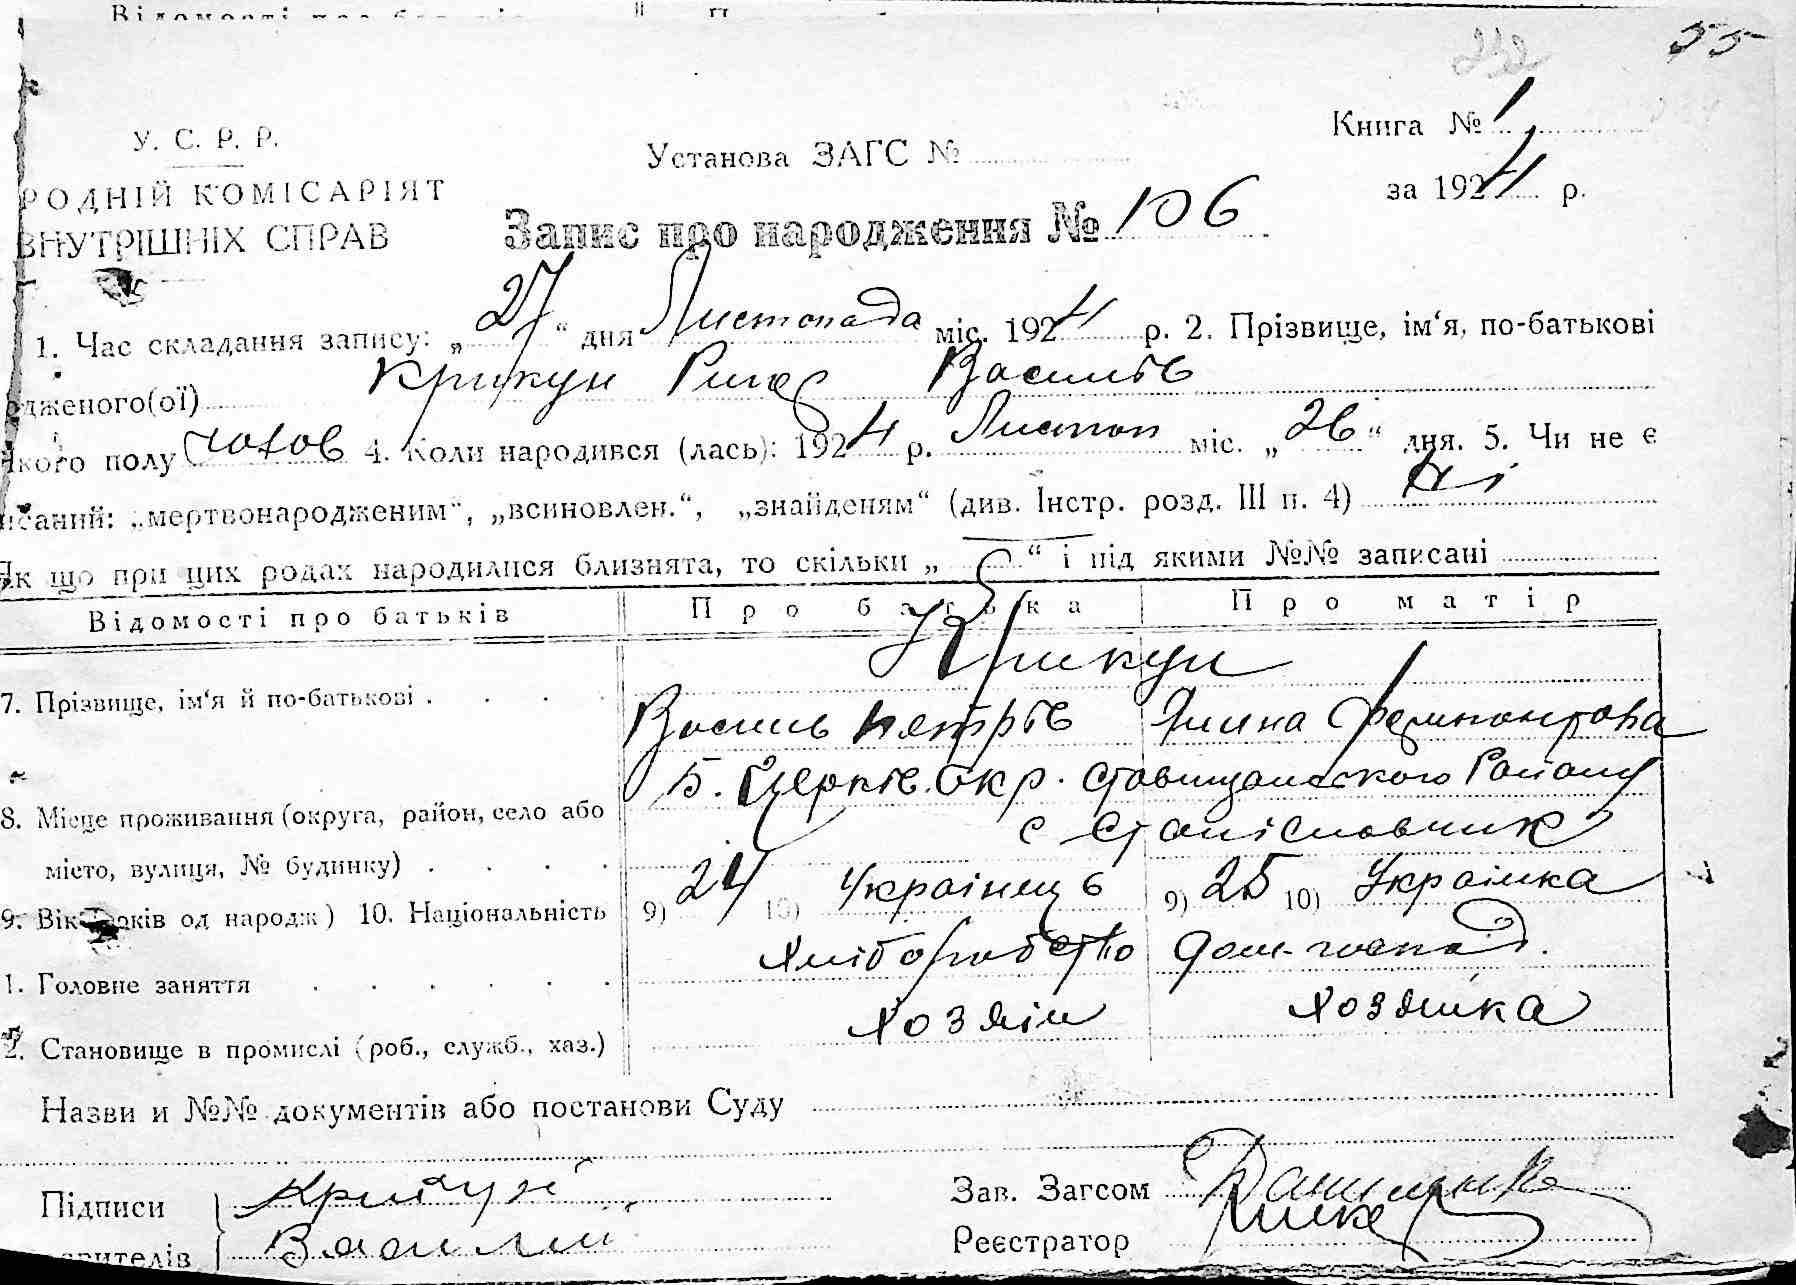 55
232
У. С. Р. Р.
РОДНІЙ КОМІСАРІЯТ
ВНУТРІШНІХ СПРАВ
Установа ЗАГС №
Книга № 1
за 1924 р.
Запис про народження № 106
1. Час складання запису: „27“ дня Листопада міс. 1924 р. 2. Прізвище, ім‘я, по-батькові
дженого(ої) Крикун Василів
якого полу чолов 4. Коли народився (лась): 1924 р. Листоп міс. „26“ дня. 5. Чи не є
исаний: „мертвонародженим“, „всиновлен.“, „знайденям“ (див. Інстр. розд. III п. 4) Ні
Як що при цих родах народилися близнята, то скільки „ “ і під якими №№ записані
Відомості про батьків Про батька Про матір
Крикун
7. Прізвище, ім‘я й по-батькові . . . .
Василь Петрів Ялина
Б. Церків. Окр. Ставищанського Району
8. Місце проживання (округа, район, село або
с Станіславчик
місто, вулиця, № будинку) . . . .
9. Вік років од народж) 10. Національність 9) 24 10) Українець 9) 25 10) Українка
1. Головне заняття . . . . . . Хліборобство Дом-господ.
2. Становище в промислі (роб., служб., хаз.) Хозяін Хозяйка
Назви и №№ документів або постанови Суду
Підписи Крикун
Зав. Загсом
Василий
Реєстратор